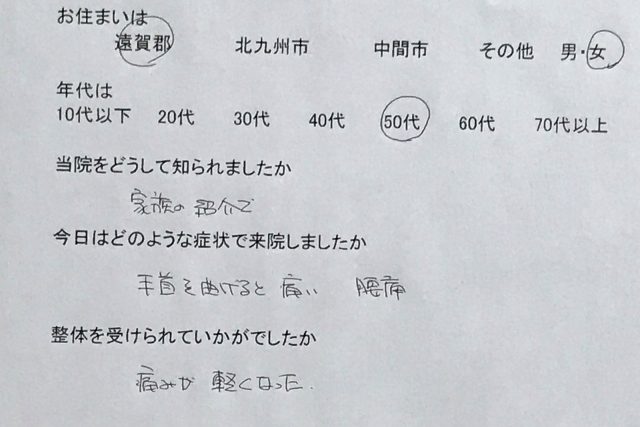 お住まいは
遠賀郡 北九州市 中間市 その他 男・女
年代は
10代以下 20代 30代 40代 50代 60代 70代以上
当院をどうして知られましたか
家族の紹介で
今日はどのような症状で来院しましたか
手首を曲げると痛い 腰痛
整体を受けられていかがでしたか
痛みが軽くなった.